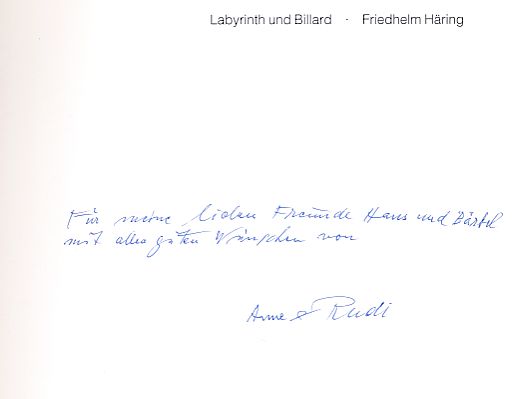 Labyrinth und Billard · Friedhelm Häring
Für meine lieben Freunde Hans und Bärbel
mit alles guten Wünschen von
Anne & Rudi